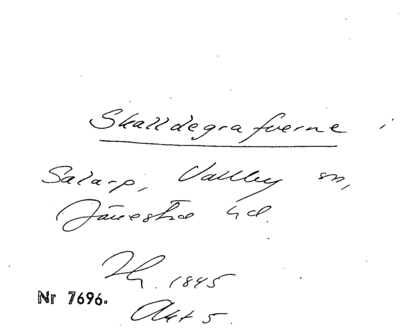 Skalldegrafverne i
Salarp, Valleby sn,
Jönestad hd.
1845
Nr 7696.
Akt 5.